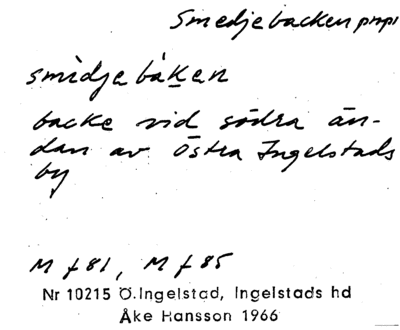 Smedjebacken propr
smìdjebáḵen
backe vid södra än-
dan av Östra Ingelstads
by
M f 81, M f 85
Nr 10215 Ö.Ingelstad, Ingelstads hd
Åke Hansson 1966